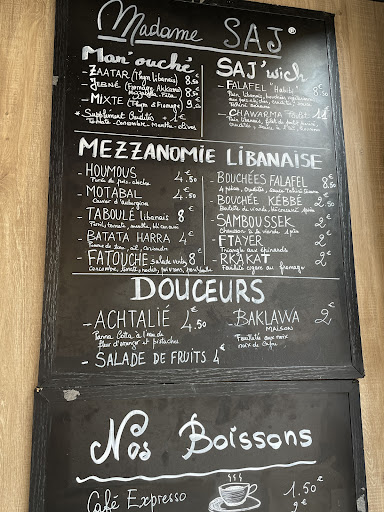 Madame SAJ®
Man'ouché
- ZAATAR (Thym libanais) 8€
- JEBNÉ (Fromage Akkawi 8.50€
Mozzarella, Feta)
- MIXTE (Thym & Fromage) 9€
* Supplément Crudités + 1€
Tomate - concombre - Menthe - olives
SAJ'wich
- FALAFEL "Habibi" 8.50
Pain libanais, bouchées végétariennes
aux pois chiches, crudités, sauce
Tahiné Sésame
- CHAWARMA 11€
MEZZANOMIE LIBANAISE
- HOUMOUS 4€.50
Purée de pois-chiches
- MOTABAL 4€.50
Caviar d'aubergine
- TABOULÉ libanais 8€
Persil, tomate, menthe, blé concassé
- BATATA HARRA 4€
Pomme de terre, ail, coriandre
- FATOUCHE salade verte 8€
Concombre, tomate, radis, poivrons, pain libanais
- BOUCHÉES FALAFEL 6€.50
4 pièces, crudités, sauce Tahiné Sésame
- BOUCHÉE KÉBBÉ 2€.50
Boulette de viande, blé concassé 1 pièce
- SAMBOUSSEK 2€
Chausson à la viande 1 pièce
- FTAYER 2€
Triangle aux épinards
- RKAKAT 2€
Feuilleté cigare au fromage
DOUCEURS
- ACHTALIÉ 4€.50
Panna Cotta à l'eau de
fleur d'oranger et pistaches
- SALADE DE FRUITS 4€
- BAKLAWA 2€
MAISON
Feuilleté aux noix
noix de Cajou
Nos Boissons
Café Expresso 1.50€
2€